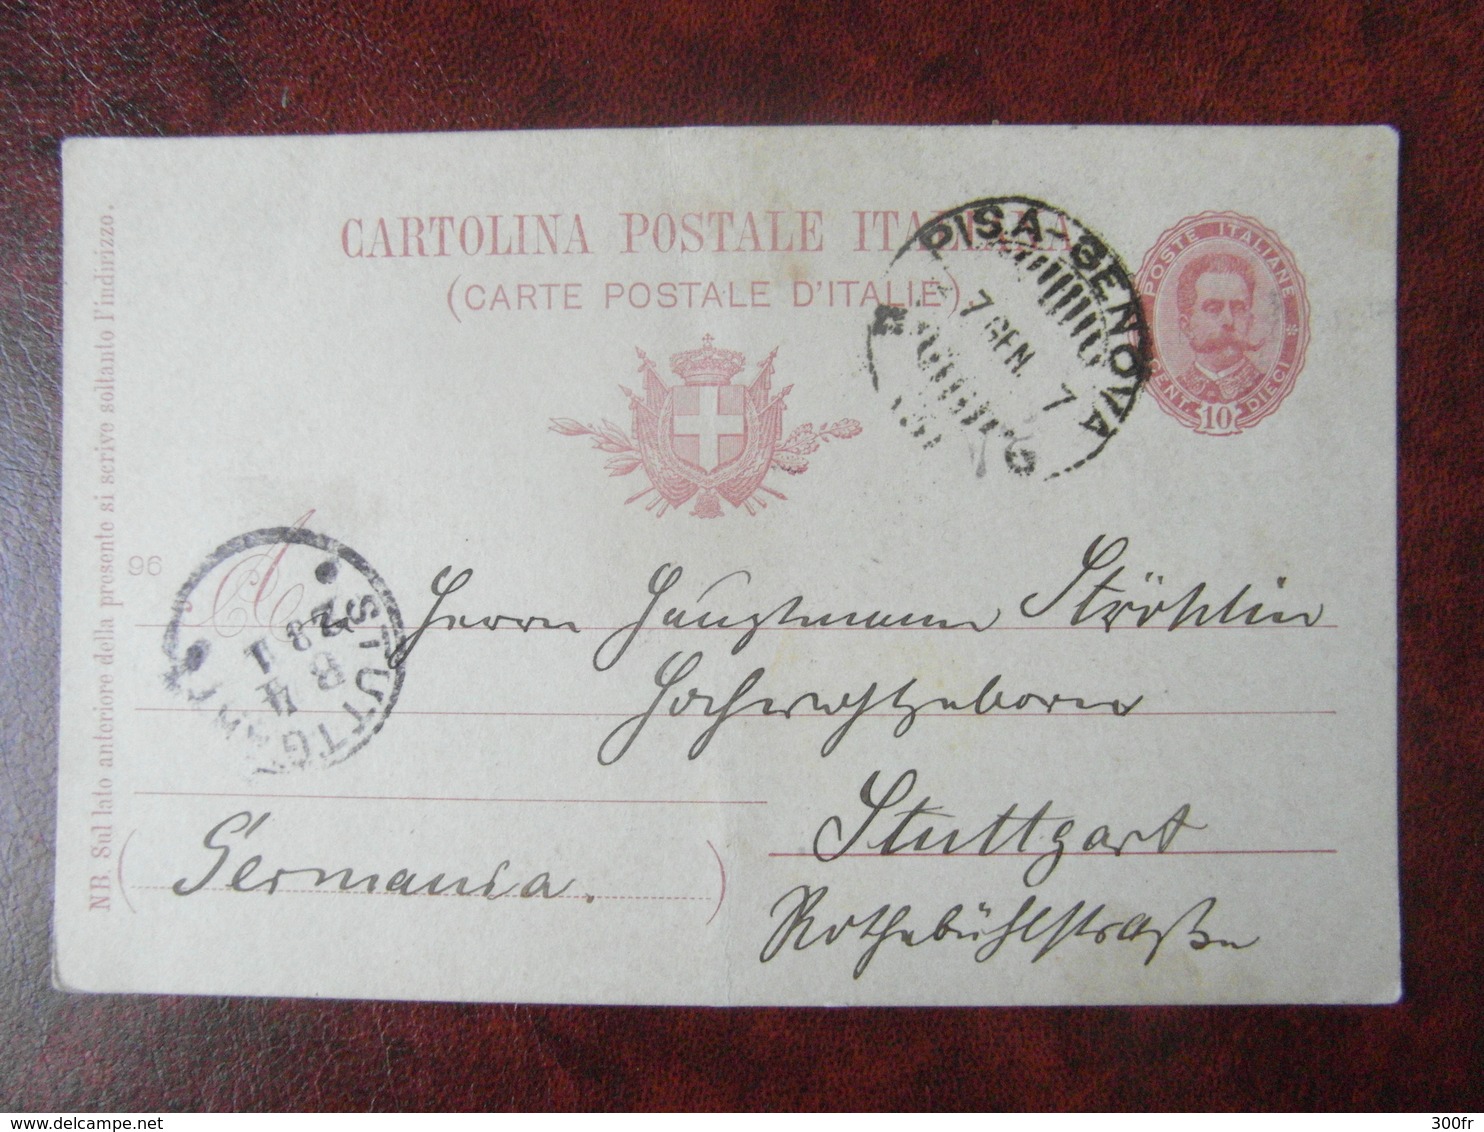 CARTOLINA POSTALE ITALIANA
(CARTE POSTALE D'ITALIE)
POSTE ITALIANE
CENT. 10 DIECI
PISA-GENOVA
7 GEN. 7
NB. Sul lato anteriore della presente si scrive soltanto l'indirizzo.
96
A
STUTTGART
Herrn Hauptmann Ströhlin
Hochwohlgeboren
Stuttgart
Germania.
Rothebühlstraße
delcampe.net
300fr